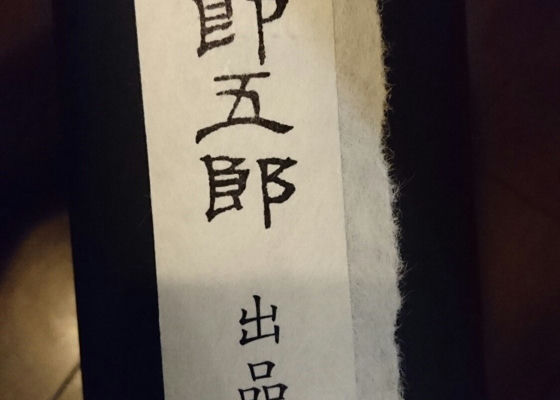 郎五郎
出品